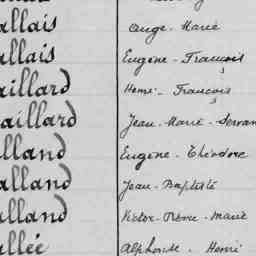 allais Ange-Marie
allais Eugène-François
aillard Henri-François
aillard Jean-Marie-Servan
lland Eugène-Théodore
alland Jean-Baptiste
lland Victor-Pierre-Marie
allée Alphonse-Henri